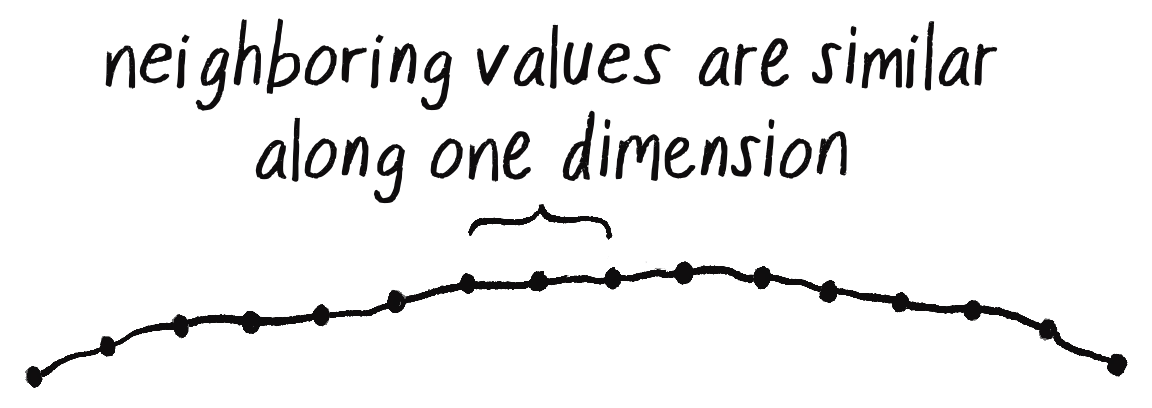 neighboring values are similar
along one dimension